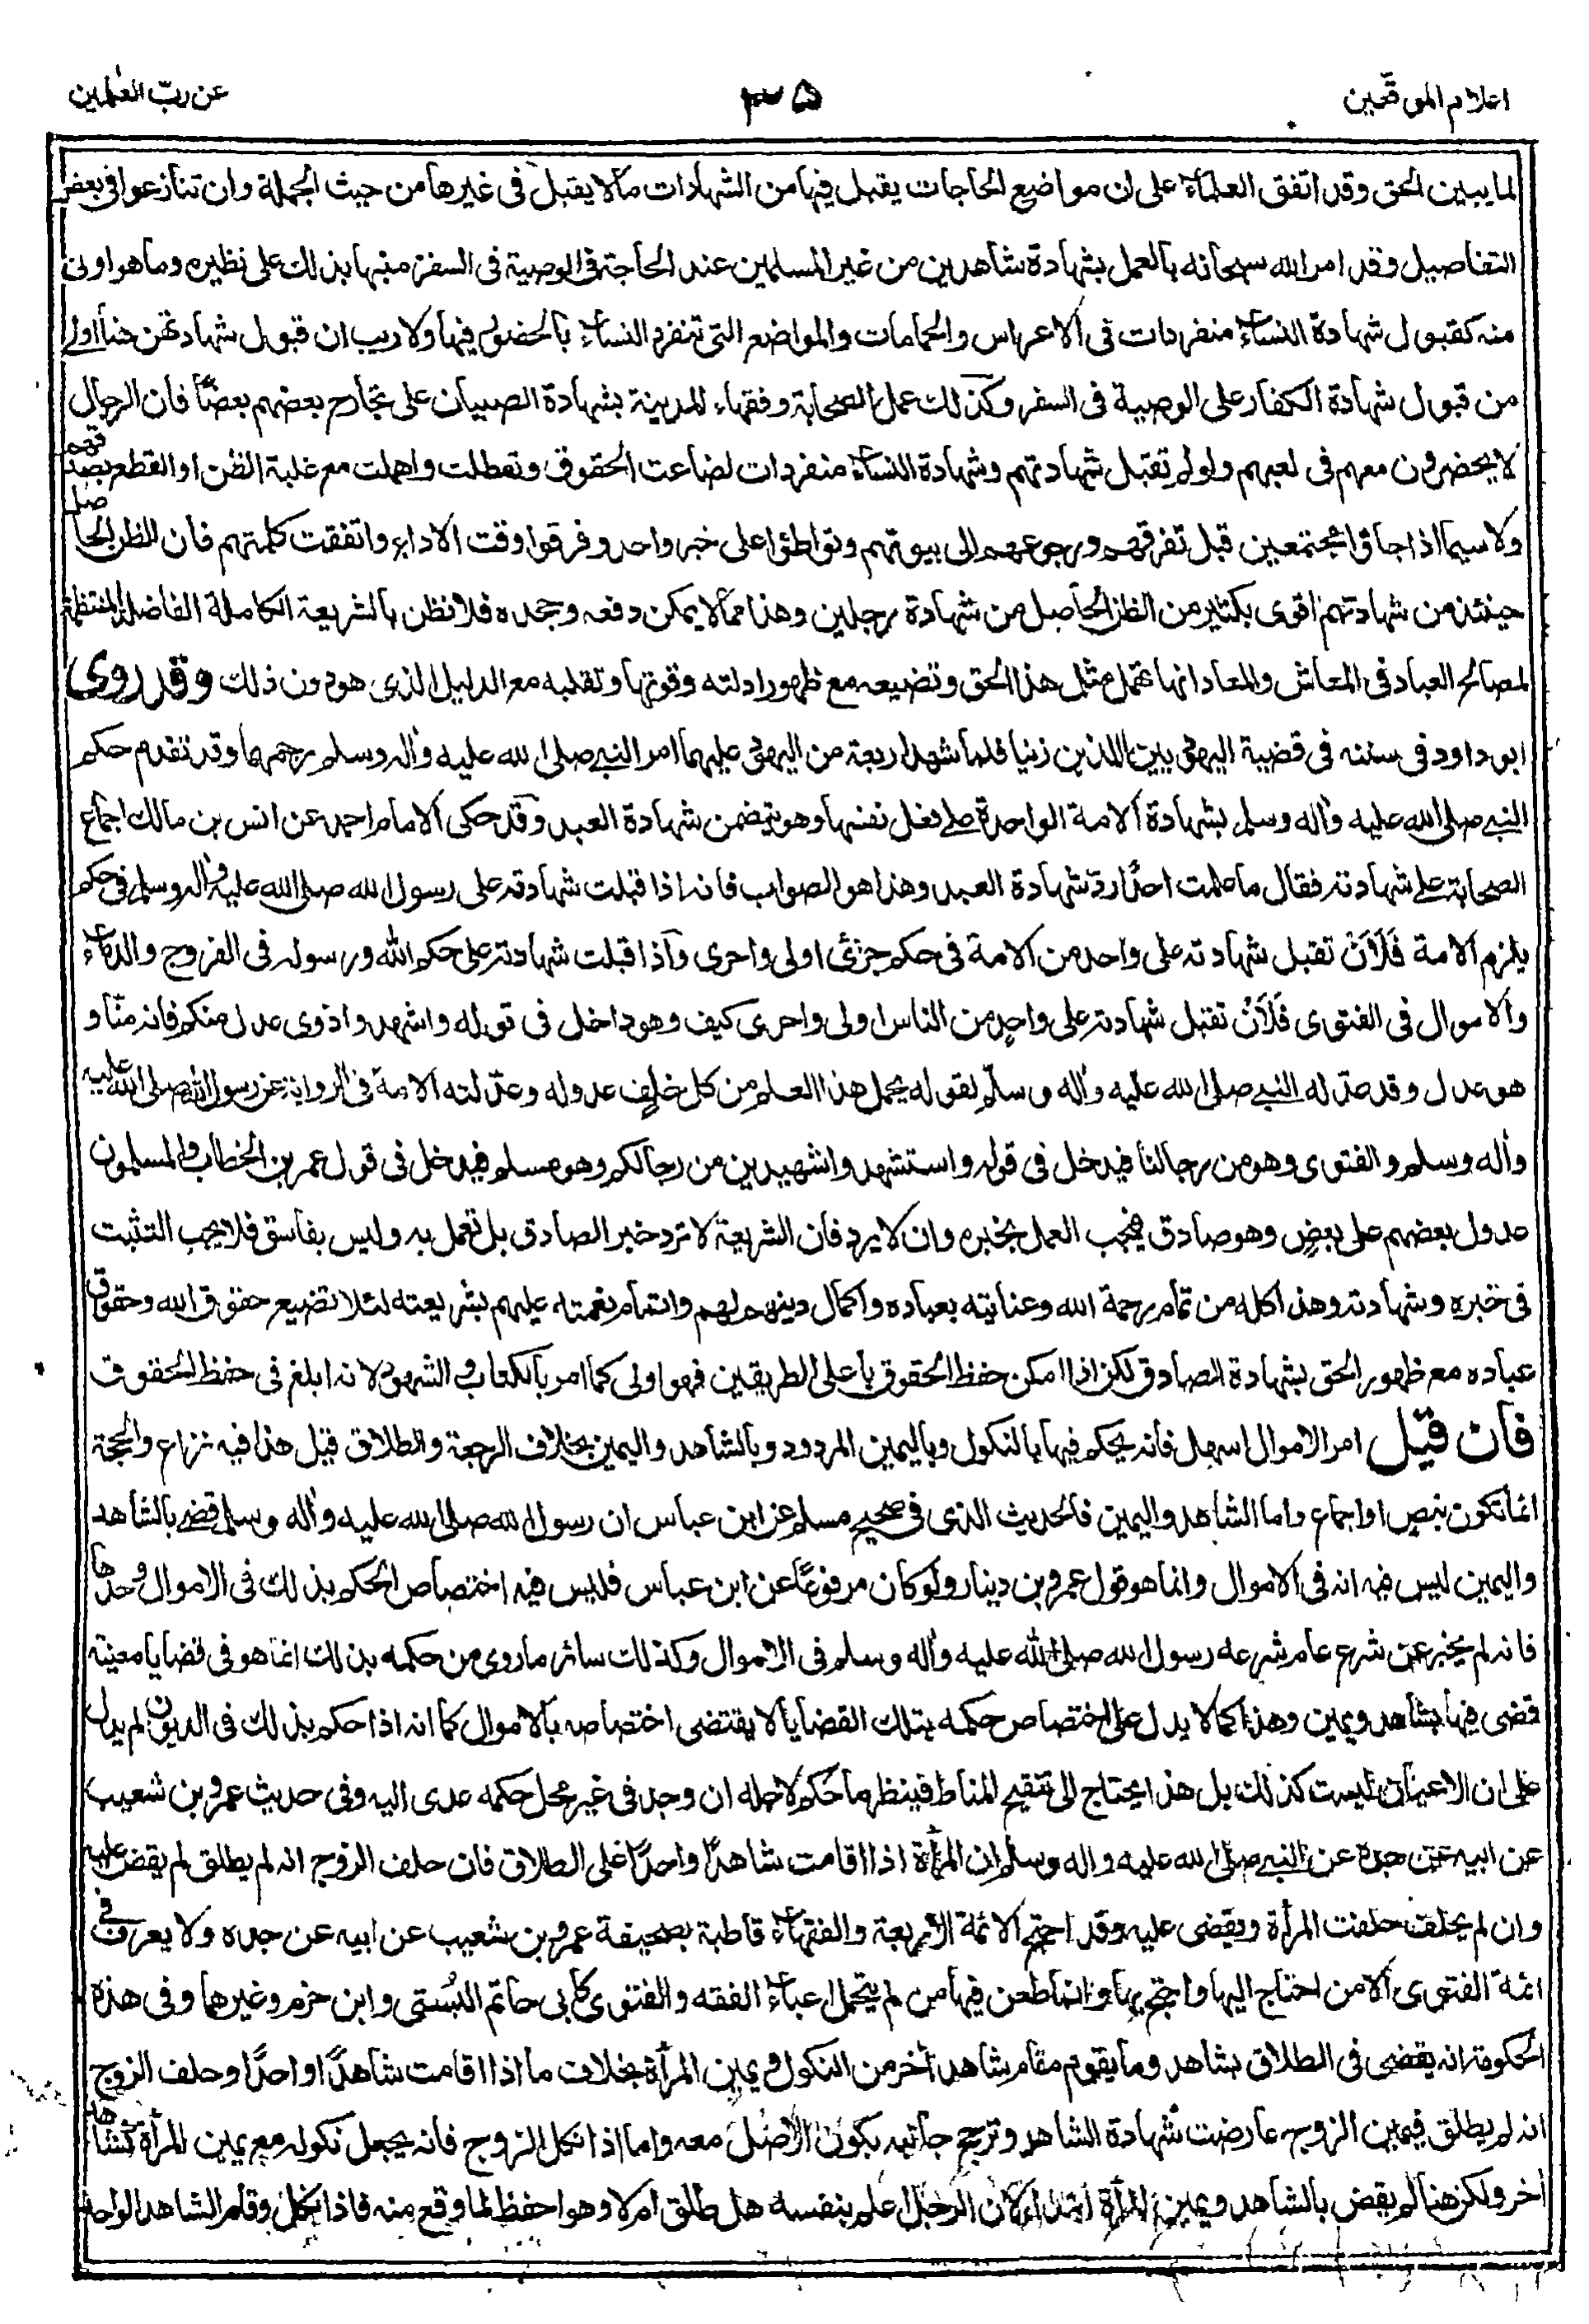 اعلام الموقعين
٣٥
عن ربّ العٰلمين
لما يبين الحق وقد اتفق العلماء على ان مواضيع الحاجات يقبل فيها من الشهادات مالا يقبل فى غيرها من حيث الجملة وان تنازعوا فى بعض
التفاصيل وقد امر الله سبحانه بالعمل بشهادة شاهدين من غير المسلمين عند الحاجة فى الوصية فى السفر منبها بذلك على نظيره وما هو اولى
منه كقبول شهادة النساء منفردات فى الاعراس والحمامات والمواضع التى تنفرد النساء بالحضور فيها ولا ريب ان قبول شهادتهن هنا اولى
من قبول شهادة الكفار على الوصية فى السفر وكذلك عمل الصحابة وفقهاء المدينة بشهادة الصبيان على تجارح بعضهم بعضًا فان الرجال
لا يحضرون معهم فى لعبهم ولو لم تقبل شهادتهم وشهادة النساء منفردات لضاعت الحقوق وتعطلت واهملت مع غلبة الظن او القطع بصدقهم
ولا سيما اذا جاؤا مجتمعين قبل تفرقهم ورجوعهم الى بيوتهم وتواطؤا على خبر واحد وفرقوا وقت الاداء واتفقت كلمتهم فان الظن الحاصل
حينئذ من شهادتهم اقوى بكثير من الظن الحاصل من شهادة رجلين وهذا مما لا يمكن دفعه وجحده فلا نظن بالشريعة الكاملة الفاضلة المنتظمة
لمصالح العباد فى المعاش والمعاد انها تهمل مثل هذا الحق وتضيعه مع ظهور ادلته وقوتها وتقلبه مع الدليل الذى هو دون ذلك وقد روى
ابو داود فى سننه فى قضية اليهوديين اللذين زنيا فلما شهد اربعة من اليهود عليهما امر النبى صلى الله عليه واٰله وسلم برجمهما وقد تقدم حكم
النبى صلى الله عليه واٰله وسلم بشهادة الامة الواحدة على فعل نفسها وهو يتضمن شهادة العبد وقد حكى الامام احمد عن انس بن مالك اجماع
الصحابة على شهادته فقال ما علمت احدًا رد شهادة العبد وهذا هو الصواب فانه اذا قبلت شهادته على رسول الله صلى الله عليه واٰله وسلم فى حكم
يلزم الامة فَلَاَنْ تقبل شهادته على واحد من الامة فى حكم جزئى اولى واحرى واذا قبلت شهادته على حكم الله ورسوله فى الفروج والدماء
والاموال فى الفتوى فَلَاَنْ تقبل شهادته على واحدٍ من الناس اولى واحرى كيف وهو داخل فى قوله واشهدوا ذوى عدل منكم فانه منّا و
هو عدل وقد عدّله النبى صلى الله عليه واٰله وسلّم لقوله يحمل هذا العلم من كل خلفٍ عدوله وعدّلته الامة فى الرواية عن رسول الله صلى الله عليه
واٰله وسلم والفتوى وهو من رجالنا فيدخل فى قوله واستشهدوا شهيدين من رجالكم وهو مسلم فيدخل فى قول عمر بن الخطاب والمسلمون
عدول بعضهم على بعضٍ وهو صادق فيجب العمل بخبره وان لا يرد فان الشريعة لا ترد خبر الصادق بل تعمل به وليس بفاسق فلا يجب التثبت
فى خبره وشهادته وهذا كله من تمام رحمة الله وعنايته بعباده واكمال دينهم لهم واتمام نعمته عليهم بشريعته لئلا تضيع حقوق الله وحقوق
عباده مع ظهور الحق بشهادة الصادق لكن اذا امكن حفظ الحقوق باعلى الطريقين فهو اولى كما امر بالكتاب والشهود لانه ابلغ فى حفظ الحقوق
فان قيل امر الاموال اسهل فانه يحكم فيها بالنكول وباليمين المردود وبالشاهد واليمين بخلاف الرجعة والطلاق قيل هذا فيه نزاع والحجة
انما تكون بنصٍ او اجماع واما الشاهد واليمين فالحديث الذى فى صحيح مسلم عن ابن عباس ان رسول الله صلى الله عليه واٰله وسلم قضى بالشاهد
واليمين ليس فيه انه فى الاموال وانما هو قول عمرو بن دينار ولو كان مرفوعًا عن ابن عباس فليس فيه اختصاص الحكم بذلك فى الاموال وحدها
فانه لم يخبر عن شرع عام شرعه رسول الله صلى الله عليه واٰله وسلم فى الاموال وكذلك سائر ما روى من حكمه بذلك انما هو فى قضايا معينة
قضى فيها بشاهد ويمين وهذا كما لا يدل على اختصاص حكمه بتلك القضايا لا يقتضى اختصاصه بالاموال كما انه اذا حكم بذلك فى الديون لم يدل
على ان الاعيان ليست كذلك بل هذا يحتاج الى تنقيح المناط فينظر ما حكم لاجله ان وجد فى غير محل حكمه عدى اليه وفى حديث عمرو بن شعيب
عن ابيه عن جده عن النبى صلى الله عليه واله وسلم ان المرأة اذا اقامت شاهدًا واحدًا على الطلاق فان حلف الزوج انه لم يطلق لم يقض عليه
وان لم يحلف حلفت المرأة ويقضى عليه وقد احتج الائمة الاربعة والفقهاء قاطبة بصحيفة عمرو بن شعيب عن ابيه عن جده ولا يعرف فى
ائمة الفتوى الا من احتاج اليها واحتج بها وانما طعن فيها من لم يتحمل اعباء الفقه والفتوى كابى حاتم البُستى وابن حزم وغيرهما وفى هذه
الحكومة انه يقضى فى الطلاق بشاهد وما يقوم مقام شاهد اٰخر من النكول ويمين المرأة بخلاف ما اذا اقامت شاهدًا واحدًا وحلف الزوج
انه لم يطلق فيمين الزوج عارضت شهادة الشاهد وترجح جانبه بكون الاصل معه واما اذا نكل الزوج فانه يجعل نكوله مع يمين المرأة كشاهد
اٰخر ولكن هنا لم يقض بالشاهد ويمين المرأة ابتداء لان الرجل اعلم بنفسه هل طلق ام لا وهو احفظ لما وقع منه فاذا نكل وقام الشاهد الواحد